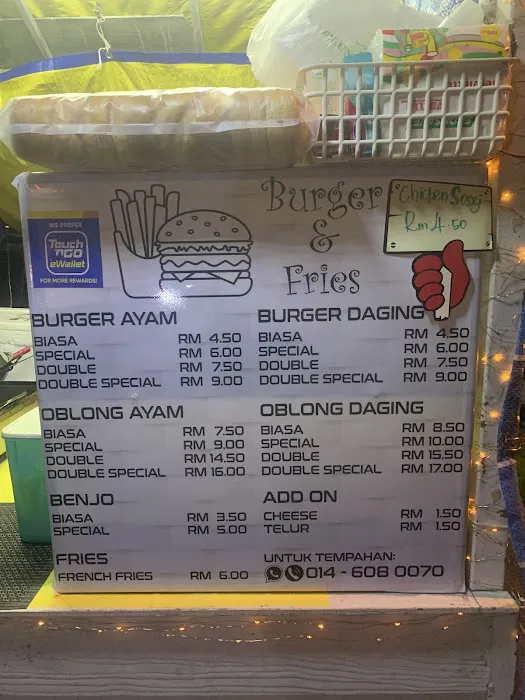 Burger
&
Fries
Chicken Sosej
Rm 4.50
WE PREFER
Touch
n GO
eWallet
FOR MORE REWARDS!
BURGER AYAM
BIASA RM 4.50
SPECIAL RM 6.00
DOUBLE RM 7.50
DOUBLE SPECIAL RM 9.00
BURGER DAGING
BIASA RM 4.50
SPECIAL RM 6.00
DOUBLE RM 7.50
DOUBLE SPECIAL RM 9.00
OBLONG AYAM
BIASA RM 7.50
SPECIAL RM 9.00
DOUBLE RM 14.50
DOUBLE SPECIAL RM 16.00
OBLONG DAGING
BIASA RM 8.50
SPECIAL RM 10.00
DOUBLE RM 15.50
DOUBLE SPECIAL RM 17.00
BENJO
BIASA RM 3.50
SPECIAL RM 5.00
ADD ON
CHEESE RM 1.50
TELUR RM 1.50
FRIES
FRENCH FRIES RM 6.00
UNTUK TEMPAHAN:
014 - 608 0070